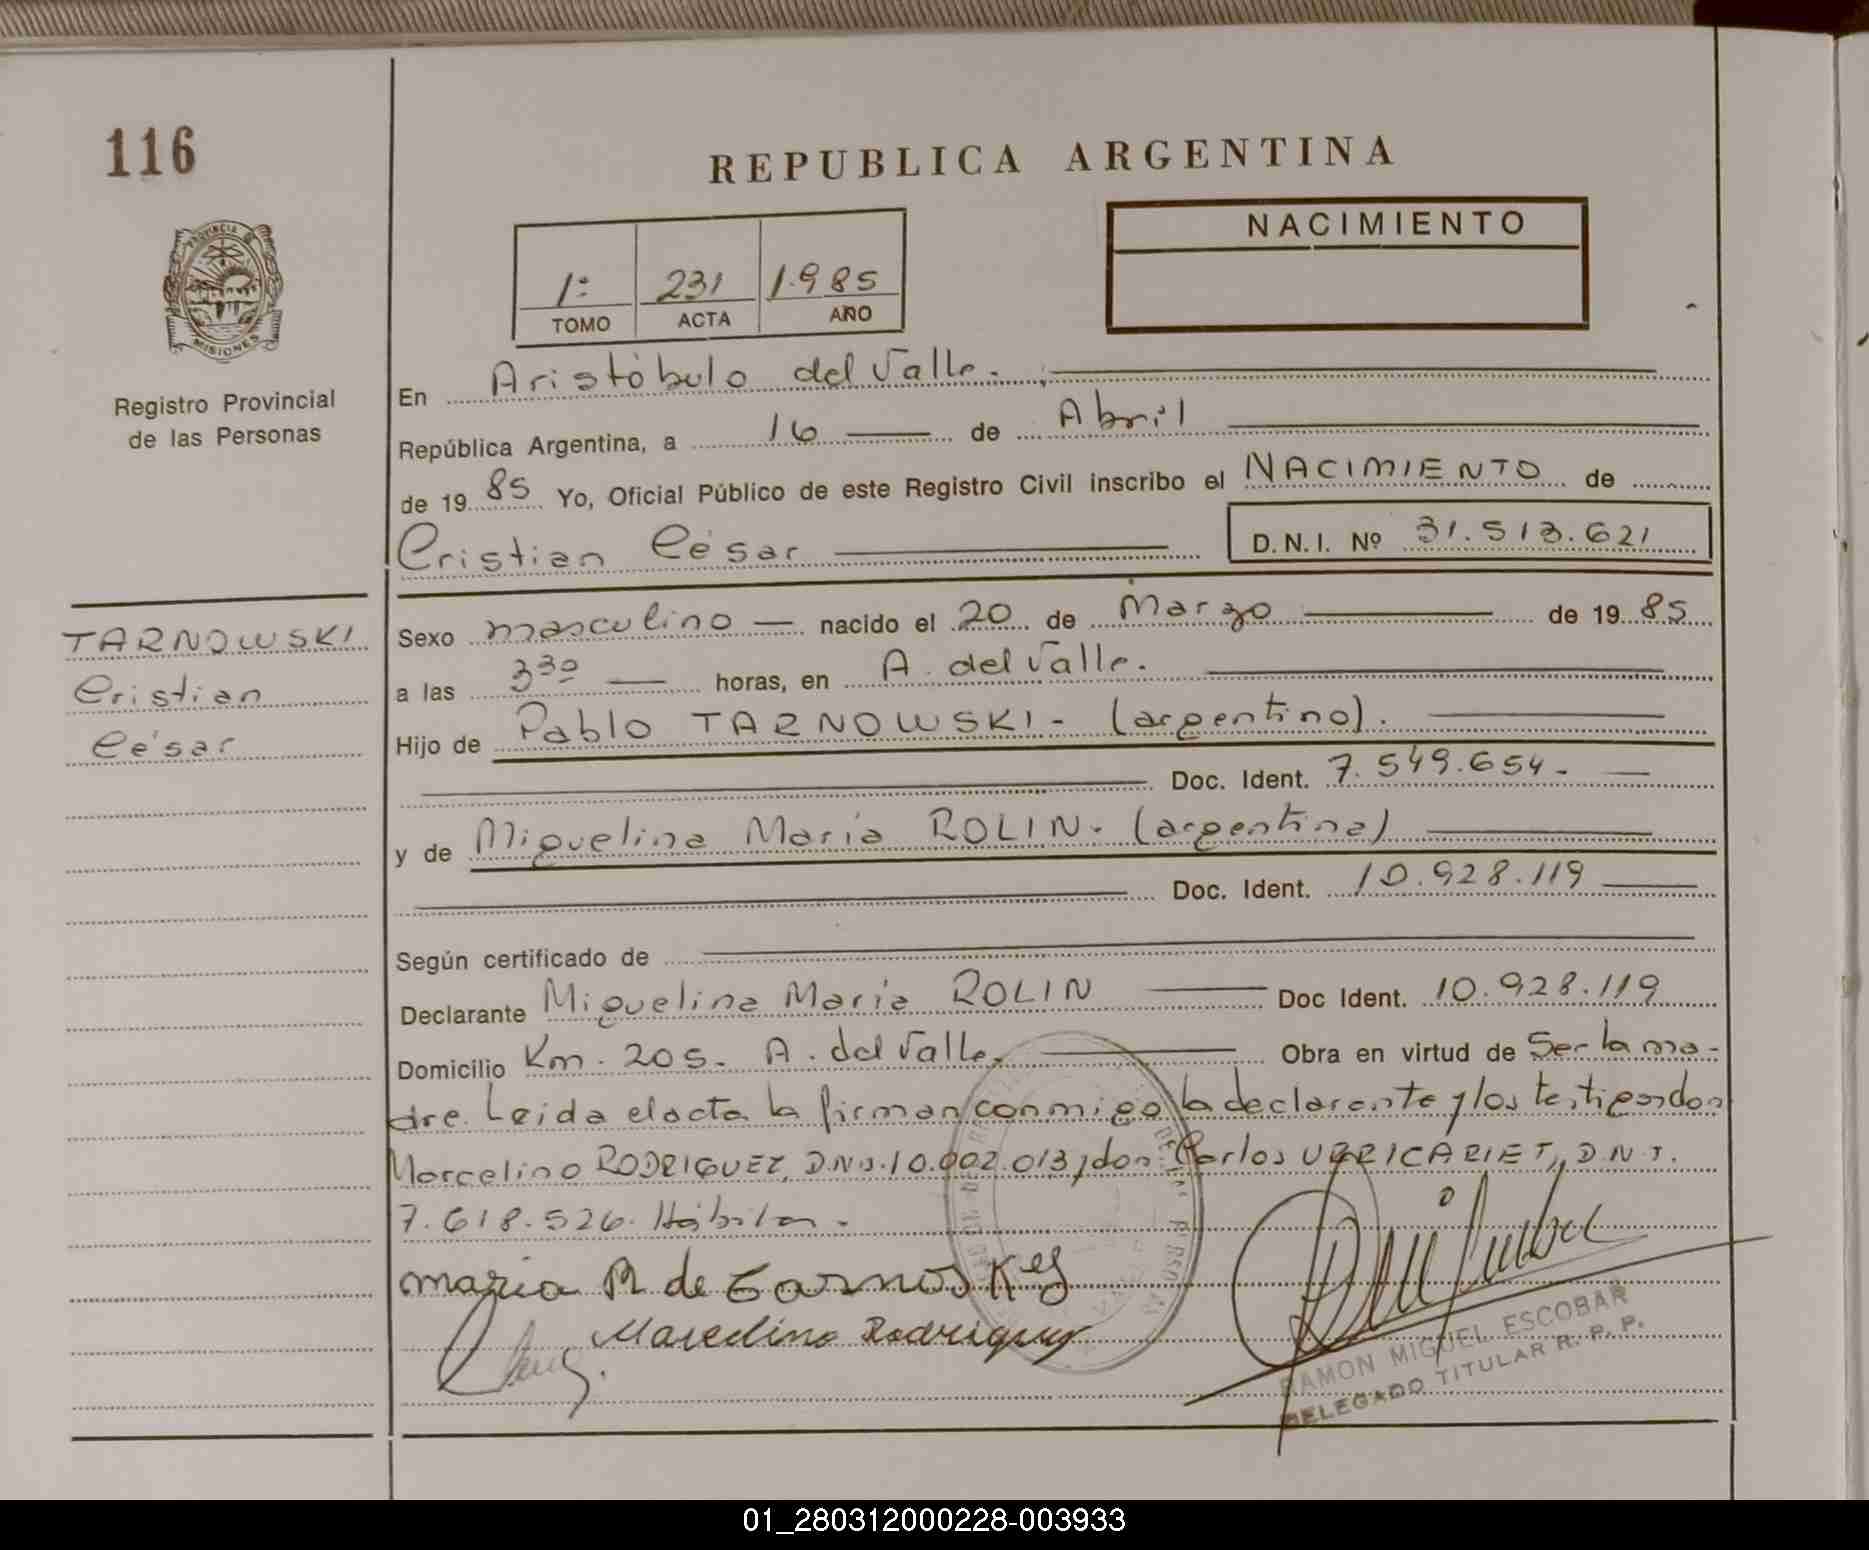 116
REPUBLICA ARGENTINA
NACIMIENTO
1º 231 1.985
TOMO ACTA AÑO
PROVINCIA DE
MISIONES
Registro Provincial
de las Personas
En Aristóbulo del Valle.
República Argentina, a 16 de Abril
de 19 85 Yo, Oficial Público de este Registro Civil inscribo el NACIMIENTO de
Cristian César D.N.I. Nº 31.513.621
TARNOWSKI
Cristian
César
Sexo masculino nacido el 20 de Marzo de 19 85
a las 3 30 horas, en A. del Valle.
Hijo de Pablo TARNOWSKI - (argentino).
Doc. Ident. 7.549.654.
y de Miguelina María ROLIN. (argentina)
Doc. Ident. 10.928.119
Según certificado de
Declarante Miguelina María ROLIN Doc Ident. 10.928.119
Domicilio Km. 205. A. del Valle. Obra en virtud de Ser la ma-
dre. Leida el acta la firman conmigo la declarante y los testigos don
Marcelino RODRIGUEZ, D.N.I. 10.002.013 y don Carlos URRICARIET, D.N.I.
7.618.526. Hábiles.
maria R de Tarnoskey
Marcelino Rodriguez
RAMON MIGUEL ESCOBAR
DELEGADO TITULAR R. P. P.
01_280312000228-003933